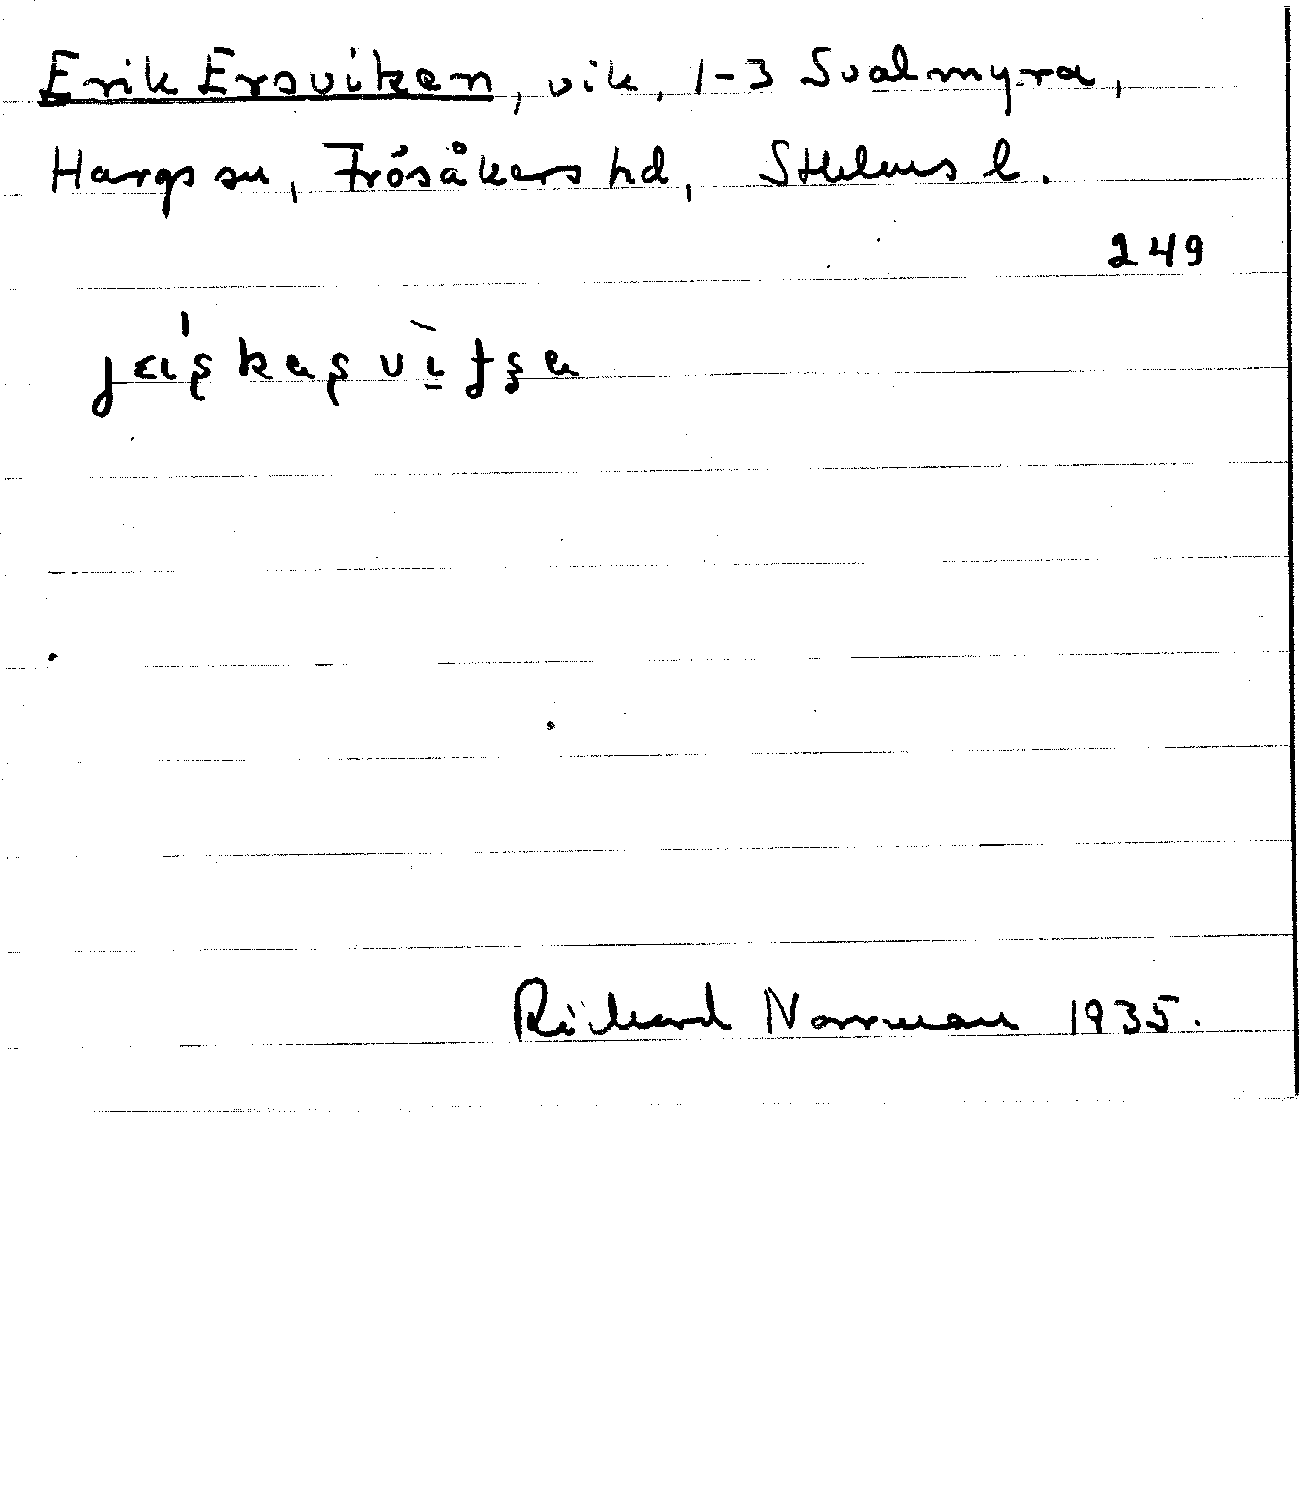 Erik Ersviken, vik, 1-3 Svalmyra,
Hargs sn, Frösåkers hd, Sthlms l.
249
Richard Norrman 1935.